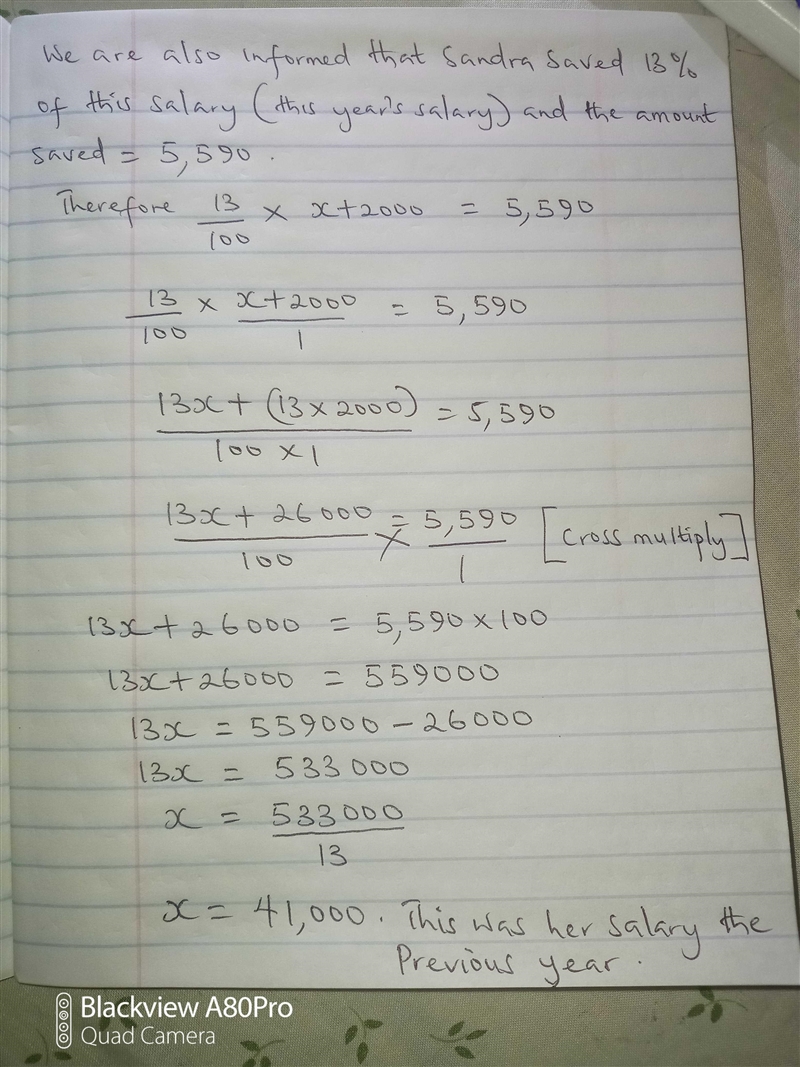 We are also informed that Sandra saved 13%
of this salary (this year's salary) and the amount
saved = 5,590.
Therefore 13/100 × x+2000 = 5,590
13/100 × x+2000/1 = 5,590
13x + (13×2000)/100 × 1 = 5,590
13x + 26000/100 = 5,590/1 [Cross multiply]
13x + 26000 = 5,590 × 100
13x + 26000 = 559000
13x = 559000 - 26000
13x = 533000
x = 533000/13
x = 41,000. This was her salary the
Previous year.
Blackview A80Pro
Quad Camera